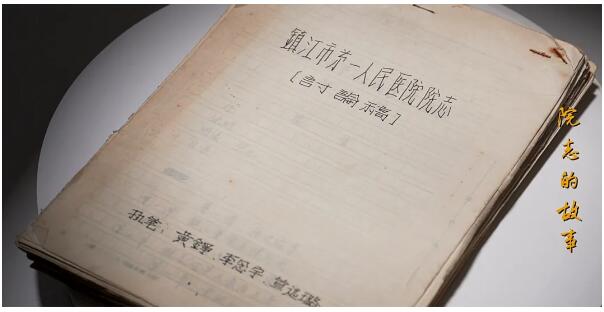 鎮江市第一人民医院院志
[討論稿]
执笔：黄錚、李恩宇、
院志的故事